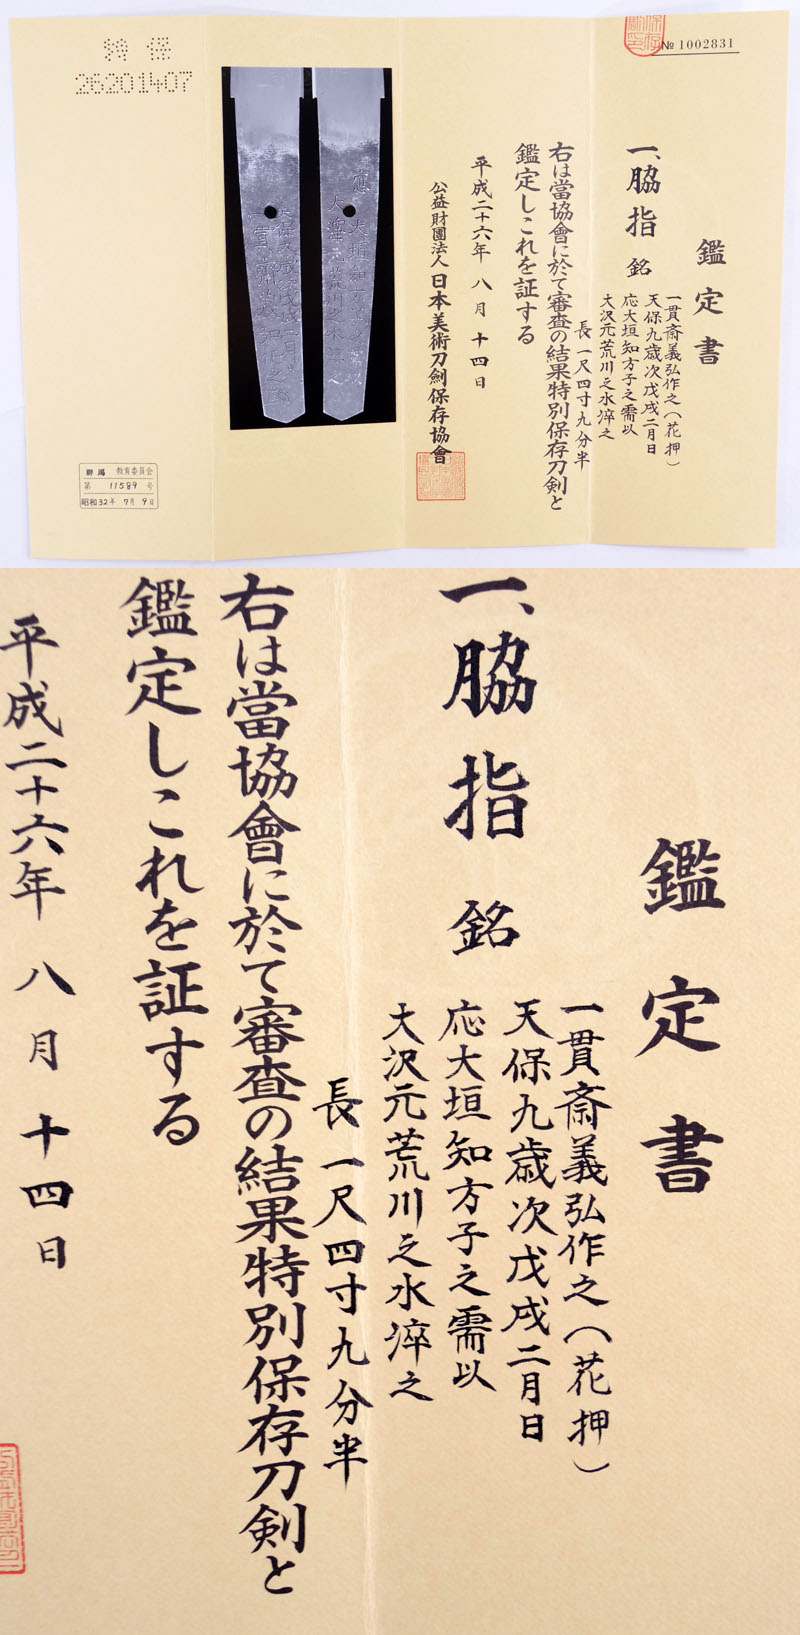 特保
26201407
№ 1002831
鑑定書
一、脇指 銘
一貫斎義弘作之（花押）
天保九歳次戊戌二月日
応大垣知方子之需以
大沢元荒川之水淬之
長 一尺四寸九分半
右は當協會に於て審査の結果特別保存刀剣と
鑑定しこれを証する
平成二十六年 八月 十四日
公益財團法人 日本美術刀劍保存協會
群馬 教育委員会
第 11589 号
昭和32年 7月 9日
鑑定書
一、脇指 銘
一貫斎義弘作之（花押）
天保九歳次戊戌二月日
応大垣知方子之需以
大沢元荒川之水淬之
長 一尺四寸九分半
右は當協會に於て審査の結果特別保存刀剣と
鑑定しこれを証する
平成二十六年 八月 十四日